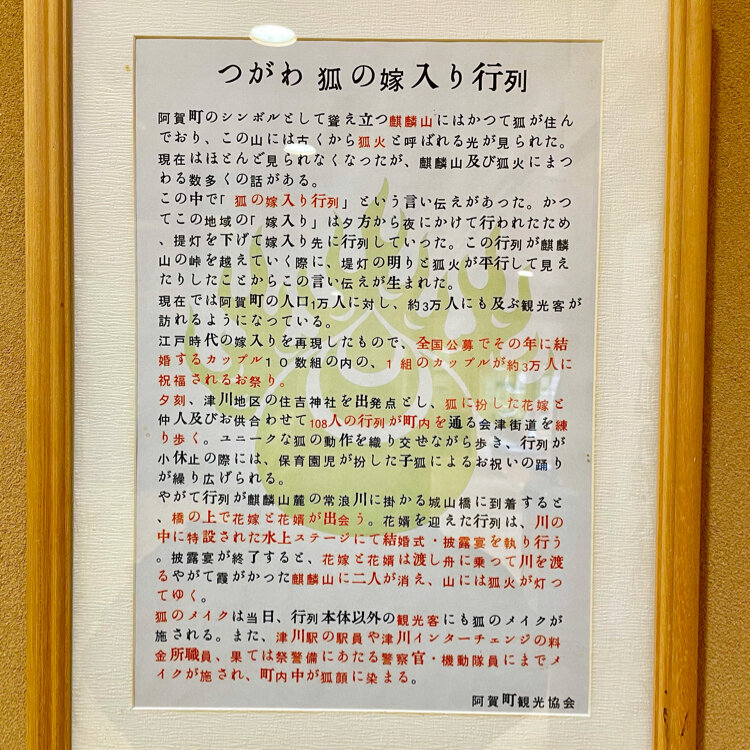 つがわ 狐の嫁入り行列
阿賀町のシンボルとして聳え立つ麒麟山にはかつて狐が住ん
でおり、この山には古くから狐火と呼ばれる光が見られた。
現在はほとんど見られなくなったが、麒麟山及び狐火にまつ
わる数多くの話がある。
この中で「狐の嫁入り行列」という言い伝えがあった。かつ
てこの地域の「嫁入り」は夕方から夜にかけて行われたため
、提灯を下げて嫁入り先に行列していった。この行列が麒麟
山の峠を越えていく際に、堤灯の明りと狐火が平行して見え
たりしたことからこの言い伝えが生まれた。
現在では阿賀町の人口1万人に対し、約3万人にも及ぶ観光客が
訪れるようになっている。
江戸時代の嫁入りを再現したもので、全国公募でその年に結
婚するカップル１０数組の内の、１組のカップルが約3万人に
祝福されるお祭り。
夕刻、津川地区の住吉神社を出発点とし、狐に扮した花嫁と
仲人及びお供合わせて108人の行列が町内を通る会津街道を練
り歩く。ユニークな狐の動作を織り交せながら歩き、行列が
小休止の際には、保育園児が扮した子狐によるお祝いの踊り
が繰り広げられる。
やがて行列が麒麟山麓の常浪川に掛かる城山橋に到着すると
、橋の上で花嫁と花婿が出会う。花婿を迎えた行列は、川の
中に特設された水上ステージにて結婚式・披露宴を執り行う
。披露宴が終了すると、花嫁と花婿は渡し舟に乗つて川を渡
るやがて霞がかった麒麟山に二人が消え、山には狐火が灯っ
てゆく。
狐のメイクは当日、行列本体以外の観光客にも狐のメイクが
施される。また、津川駅の駅員や津川インターチェンジの料
金所職員、果ては祭警備にあたる警察官・機動隊員にまでメ
イクが施され、町内中が狐顔に染まる。
阿賀町観光協会